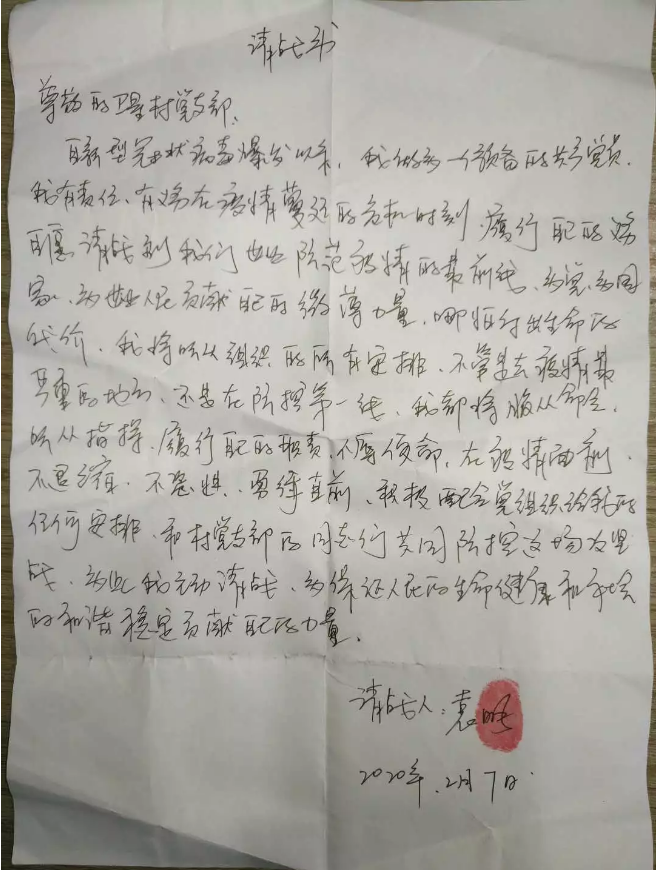 请战书
尊敬的卫星村党支部:
自新型冠状病毒爆发以来,我做为一个预备的共产党员,
我有责任、有义务在疫情蔓延的危机时刻履行自己的义务
自愿请战到我们 防范疫情的最前线,为党、为国
家、为 人民贡献自己的微薄力量,哪怕付出生命的
代价,我将听从组织的所有安排,不管是去疫情最
严重的地方,还是在防控第一线,我都将服从命令,
听从指挥,履行自己的职责,不辱使命,在疫情面前,
不退缩,不畏惧,勇往直前,积极配合党组织给我的
任何安排,和村党支部的同志们共同防控这场攻坚
战,为此我主动请战,为保证人民的生命健康和社会
的和谐稳定贡献自己的力量。
请战人:袁
2020年2月7日